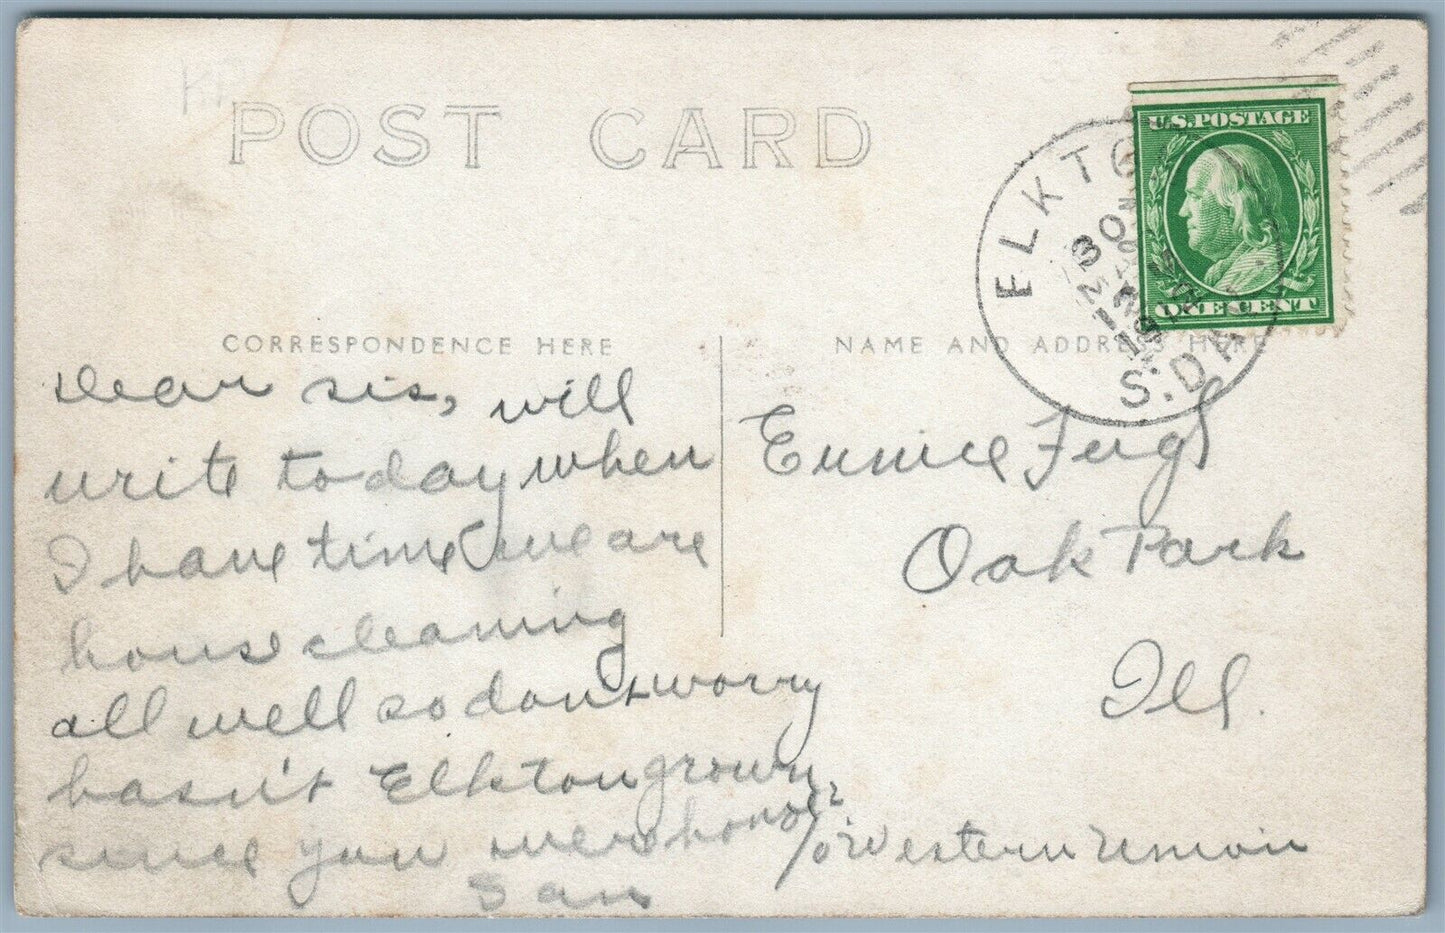 POST CARD
U.S. POSTAGE
ONE CENT
ELKTO
S.D.
CORRESPONDENCE HERE
NAME AND ADDRESS HERE
Dear sis, will
write today when
I have time we are
house cleaning
all well so dont worry
hasn't Elkton grown
since you were home
San
Eunice Fergl
Oak Park
Ill.
c/o Western Union